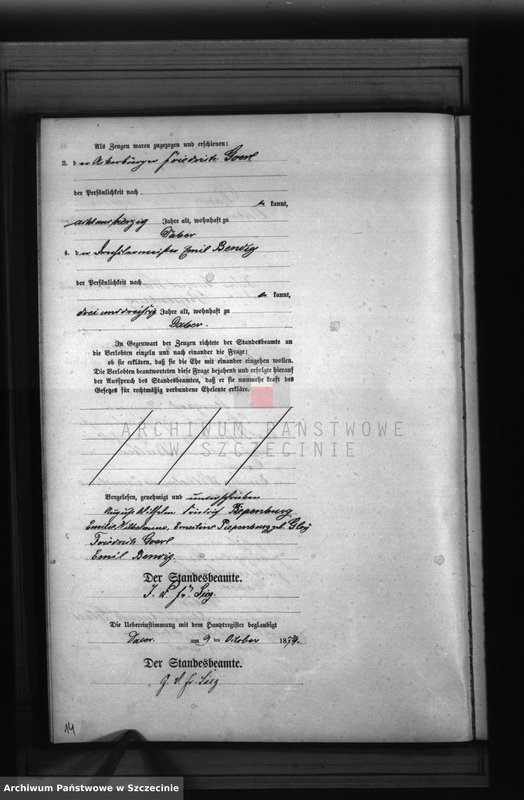 Als Zeugen waren zugezogen und erschienen:
3. der Ackerbürger Friedrich Goerl
der Persönlichkeit nach
kannt,
achtundvierzig Jahre alt, wohnhaft zu
Daber
4. der Drechslermeister Emil Benzig
der Persönlichkeit nach
kannt,
drei und dreißig Jahre alt, wohnhaft zu
Daber.
In Gegenwart der Zeugen richtete der Standesbeamte an
die Verlobten einzeln und nach einander die Frage:
ob sie erklären, daß sie die Ehe mit einander eingehen wollen.
Die Verlobten beantworteten diese Frage bejahend und erfolgte hierauf
der Ausspruch des Standesbeamten, daß er sie nunmehr kraft des
Gesetzes für rechtmäßig verbundene Eheleute erkläre.
ARCHIWUM PAŃSTWOWE
W SZCZECINIE
Vorgelesen, genehmigt und unterschrieben
August Wilhelm Friedrich Piepenburg
Wilhelmine, Piepenburg geb.
Friedrich Goerl
Emil Benzig.
Der Standesbeamte.
Die Uebereinstimmung mit dem Hauptregister beglaubigt
Daber am 9 ten Oktober 187
Der Standesbeamte.
14
Archiwum Państwowe w Szczecinie